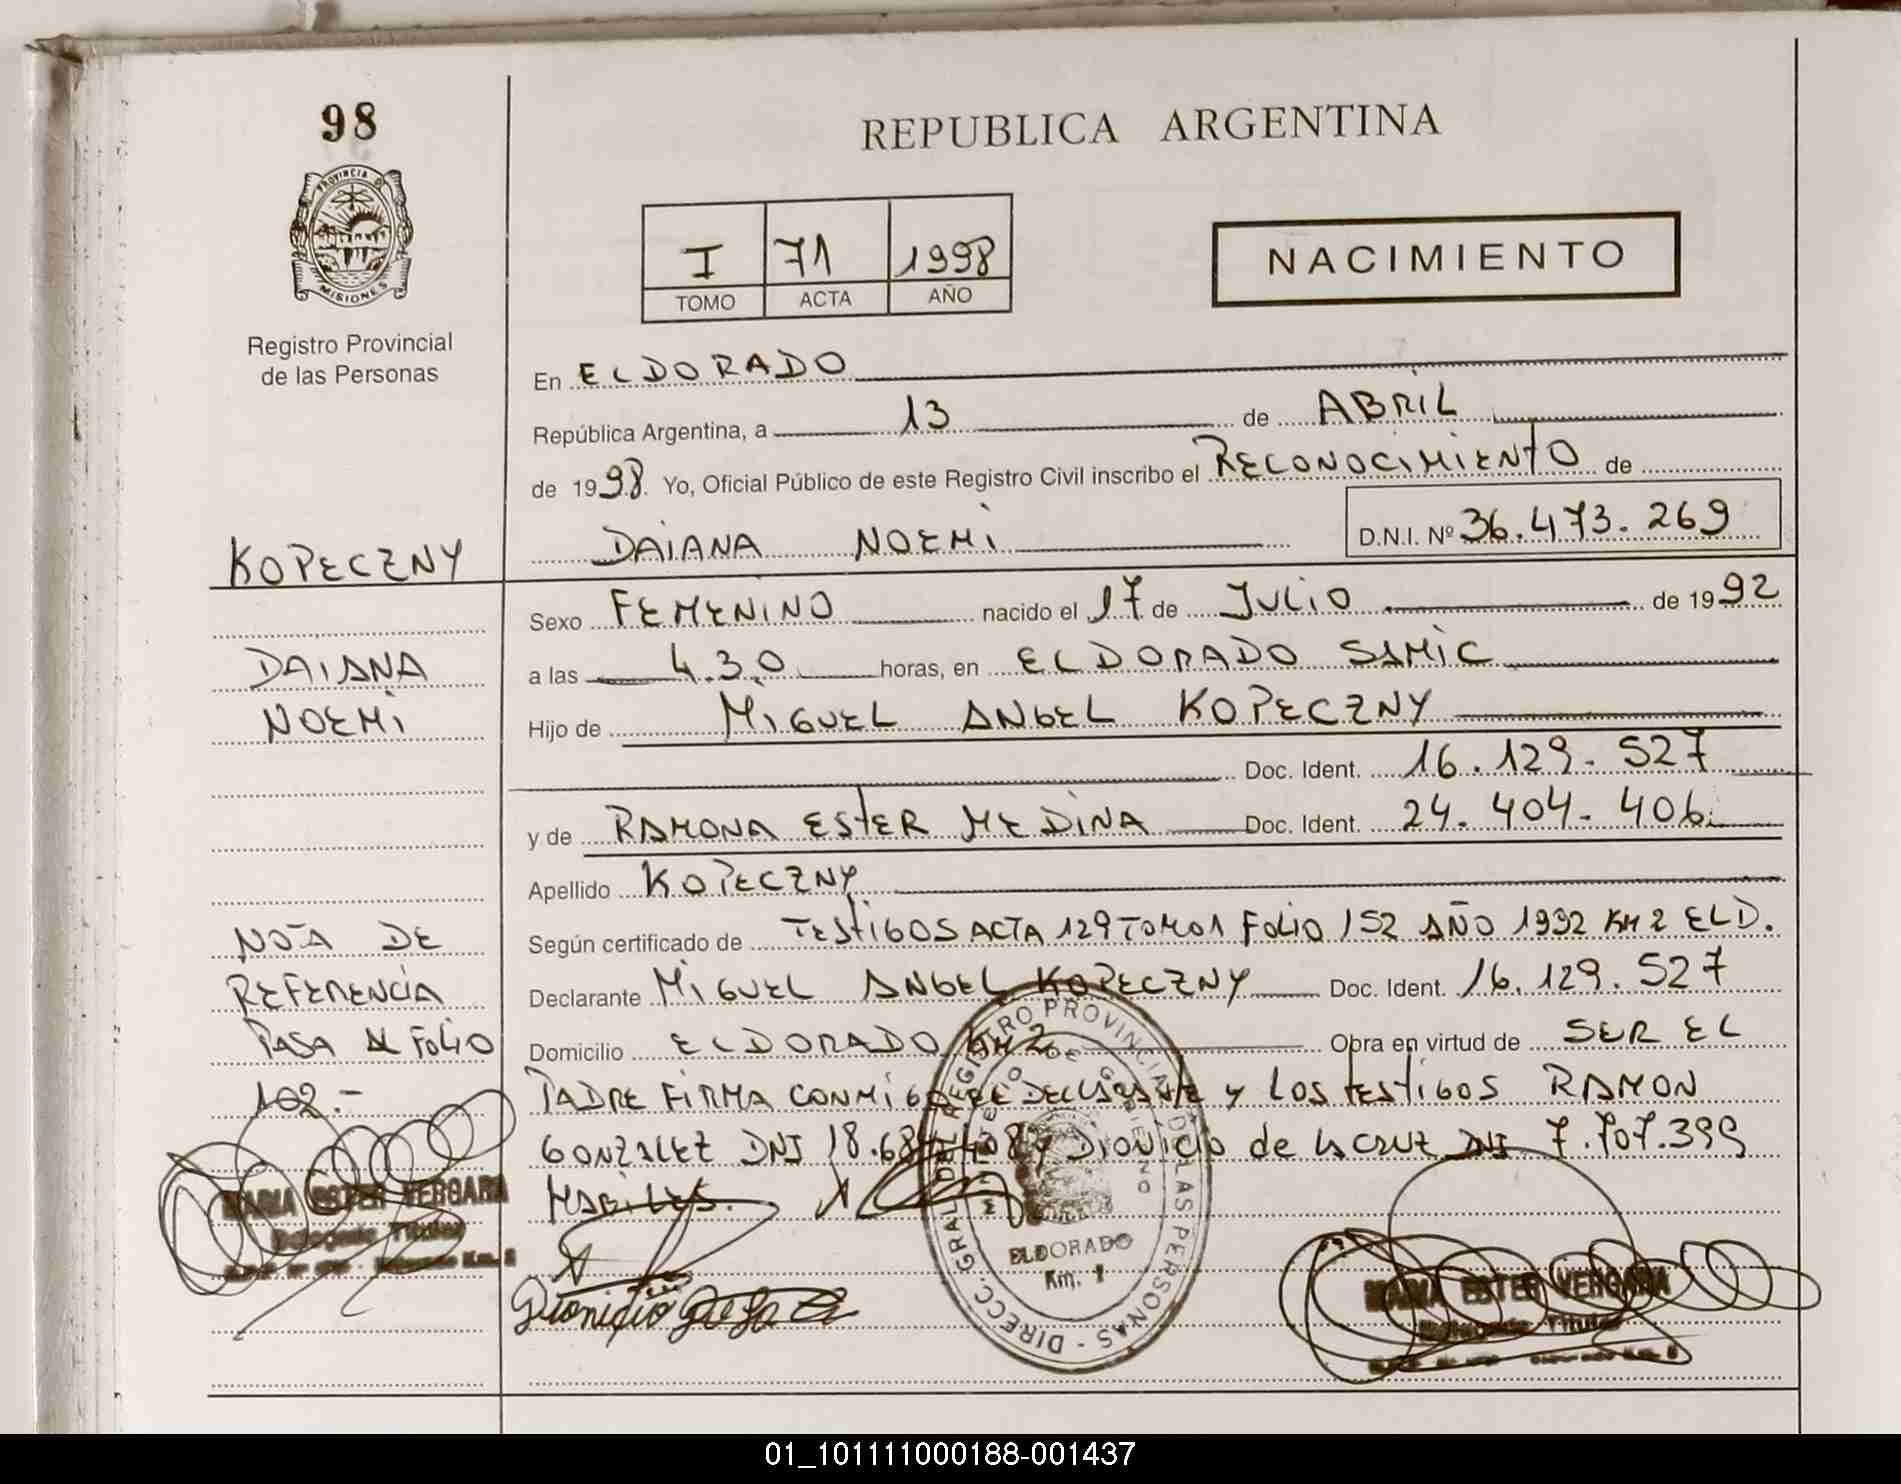 98
REPUBLICA ARGENTINA
PROVINCIA DE
MISIONES
I 71 1998
TOMO ACTA AÑO
NACIMIENTO
Registro Provincial
de las Personas
En ELDORADO
República Argentina, a 13 de ABRIL
de 1998. Yo, Oficial Público de este Registro Civil inscribo el RECONOCIMIENTO de
DAIANA NOEMI D.N.I. Nº 36.473.269
KOPECZNY
Sexo FEMENINO nacido el 17 de JULIO de 1992
DAIANA
a las 4.30 horas, en ELDORADO SAMIC
NOEMI
Hijo de MIGUEL ANGEL KOPECZNY
Doc. Ident. 16.129.527
y de RAMONA ESTER MEDINA Doc. Ident. 24.404.406.
Apellido KOPECZNY
NOTA DE
Según certificado de TESTIGOS ACTA 129 TOMO 1 FOLIO 152 AÑO 1992 KM 2 ELD.
REFERENCIA
Declarante MIGUEL ANGEL KOPECZNY Doc. Ident. 16.129.527
PASA AL FOLIO
Domicilio ELDORADO KM 2 Obra en virtud de SER EL
102.-
PADRE FIRMA CONMIGO EL DECLARANTE Y LOS TESTIGOS RAMON
GONZALEZ DNI Y DIONICIO de LA CRUZ DNI 7.707.399
HABILES.
MARIA ESTER VERGARA
Delegada Titular
DIRECC. GRAL. DEL REGISTRO PROVINCIAL DE LAS PERSONAS
MINISTERIO DE GOBIERNO
ELDORADO
Km. 1
Dionicio De La
MARIA ESTER VERGARA
Delegada Titular
01_101111000188-001437